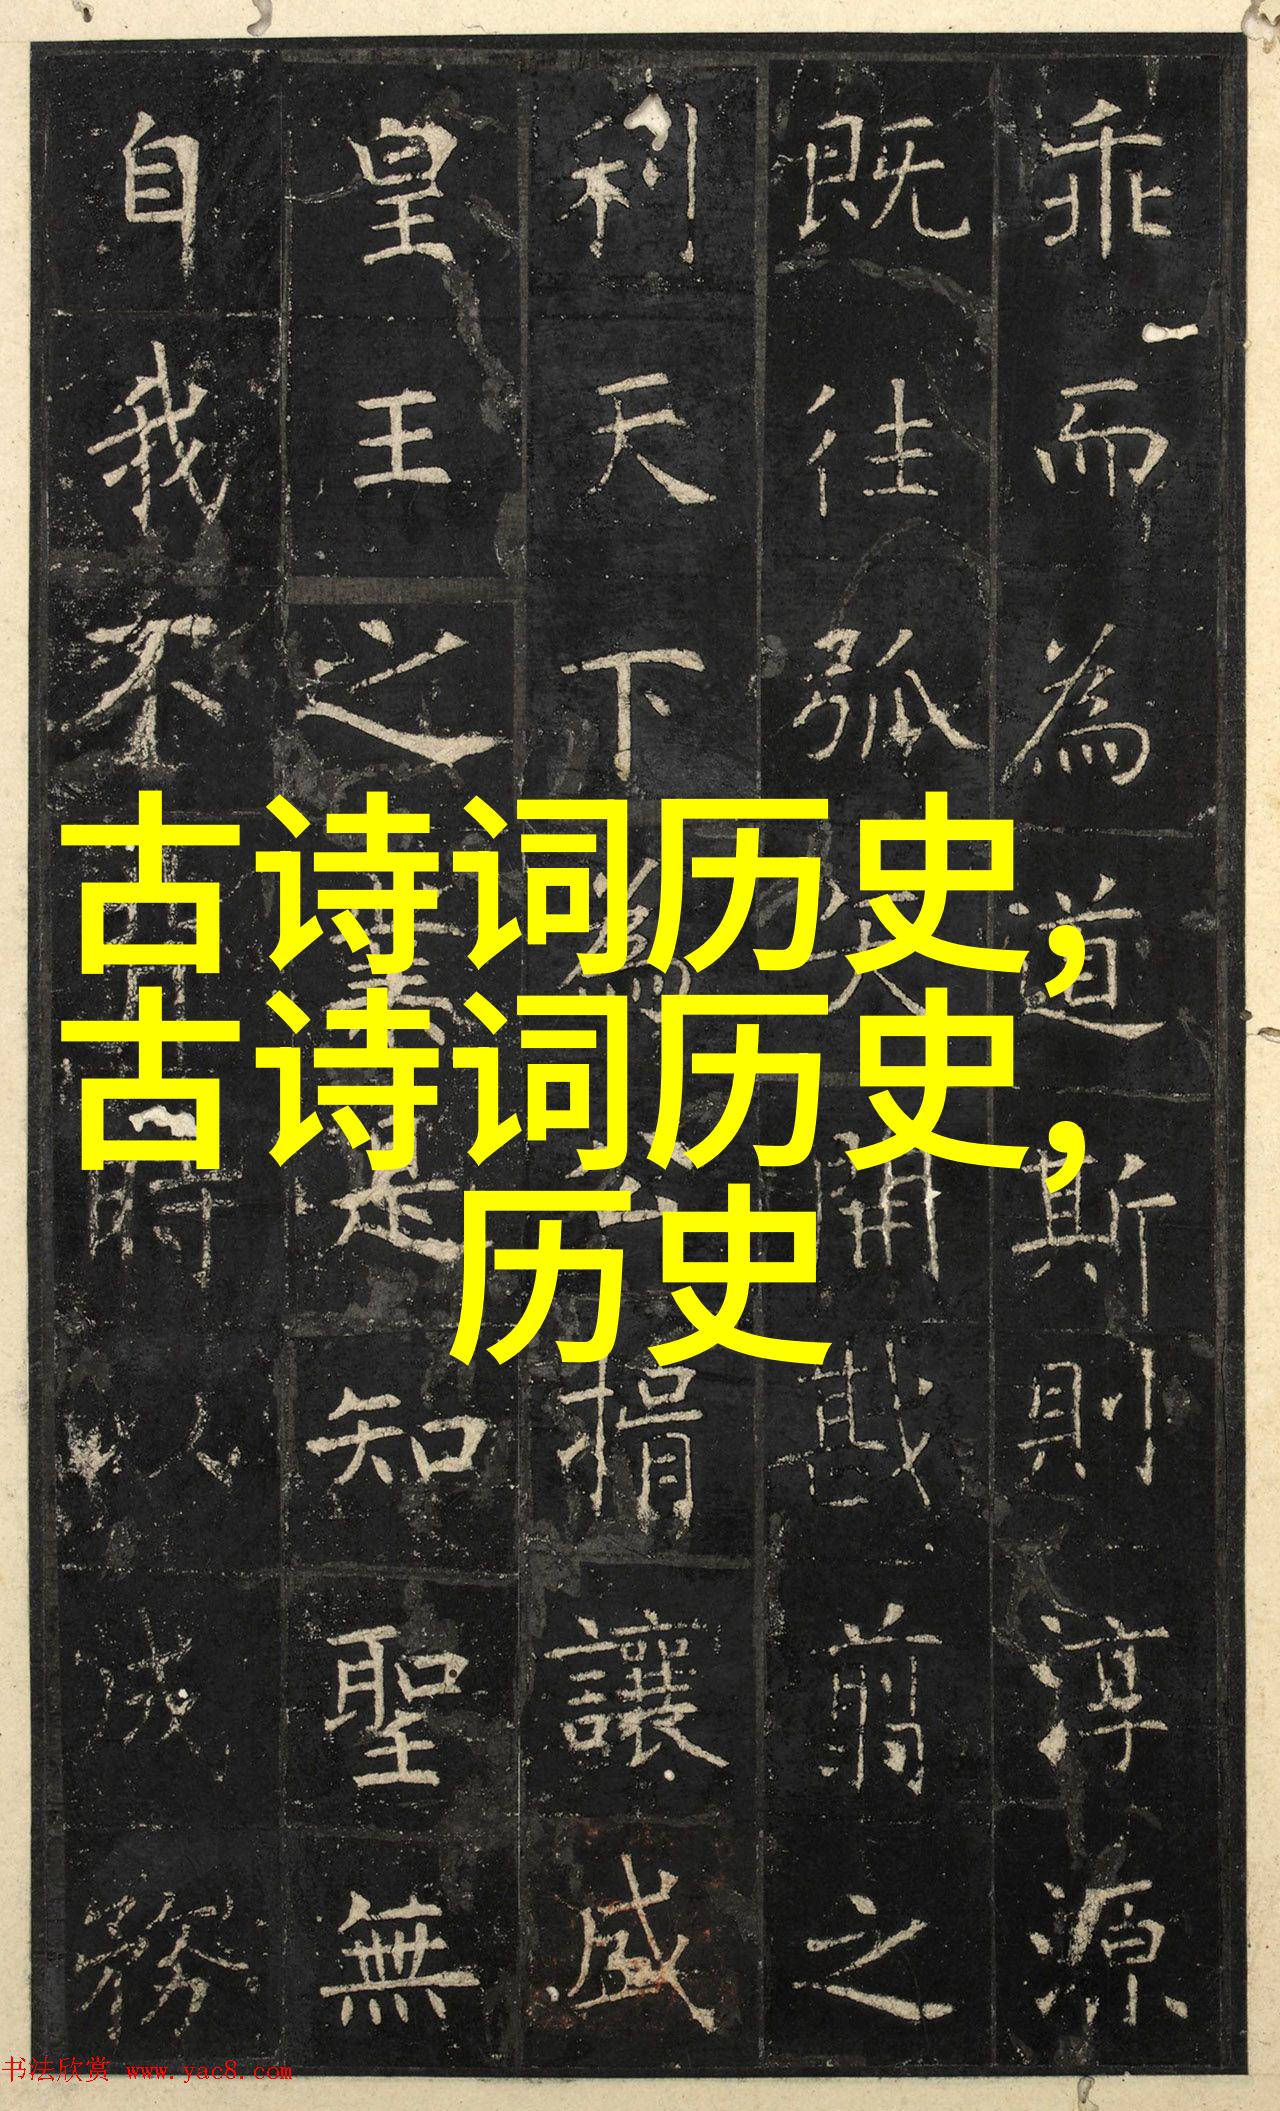 乖而為道斯則淳源
既往弧矢開戡翦之
利天下為公揖讓盛
皇王之業是知聖無
自我不時以成務
古诗词历史，
古诗词历史，
历史
书法欣赏 www.yac8.com